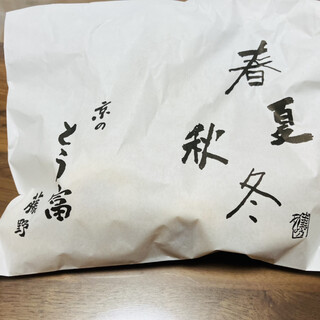 春夏秋冬
京の
とう富
藤野